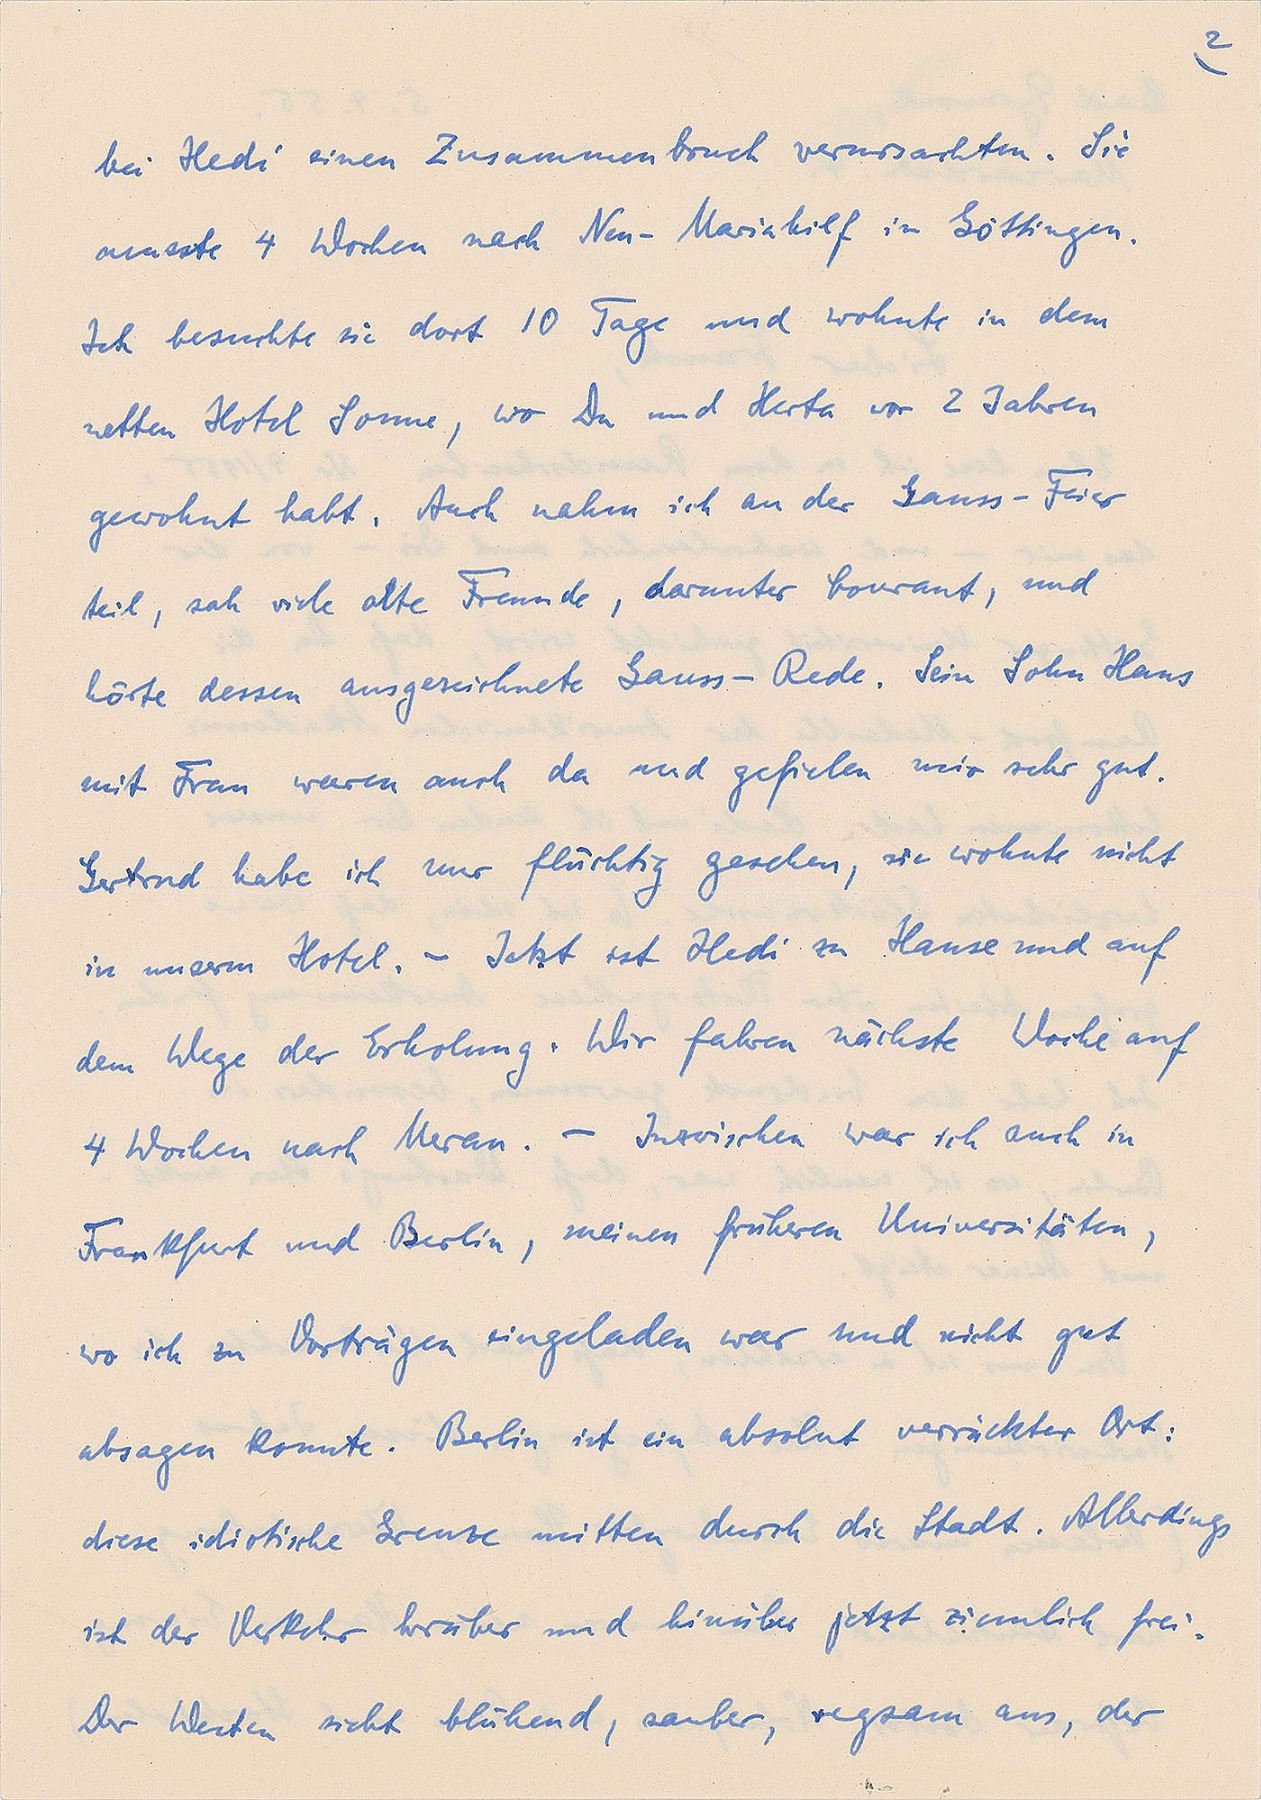 2
bei Hedi einen Zusammenbruch verursachten. Sie
musste 4 Wochen nach Neu-Mariahilf in Göttingen.
Ich besuchte sie dort 10 Tage und wohnte in dem
netten Hotel Sonne, wo Du und Herta vor 2 Jahren
gewohnt habt. Auch nahm ich an der Gauss-Feier
teil, sah viele alte Freunde, darunter Courant, und
hörte dessen ausgezeichnete Gauss-Rede. Sein Sohn Hans
mit Frau waren auch da und gefielen mir sehr gut.
Gertrud habe ich nur flüchtig gesehen, sie wohnte nicht
in unserm Hotel. – Jetzt ist Hedi zu Hause und auf
dem Wege der Erholung. Wir fahren nächste Woche auf
4 Wochen nach Meran. – Inzwischen war ich auch in
Frankfurt und Berlin, meinen früheren Universitäten,
wo ich zu Vorträgen eingeladen war und nicht gut
absagen konnte. Berlin ist ein absolut verrückter Ort:
diese idiotische Grenze mitten durch die Stadt. Allerdings
ist der Verkehr herüber und hinüber jetzt ziemlich frei.
Der Westen sieht blühend, sauber, regsam aus, der